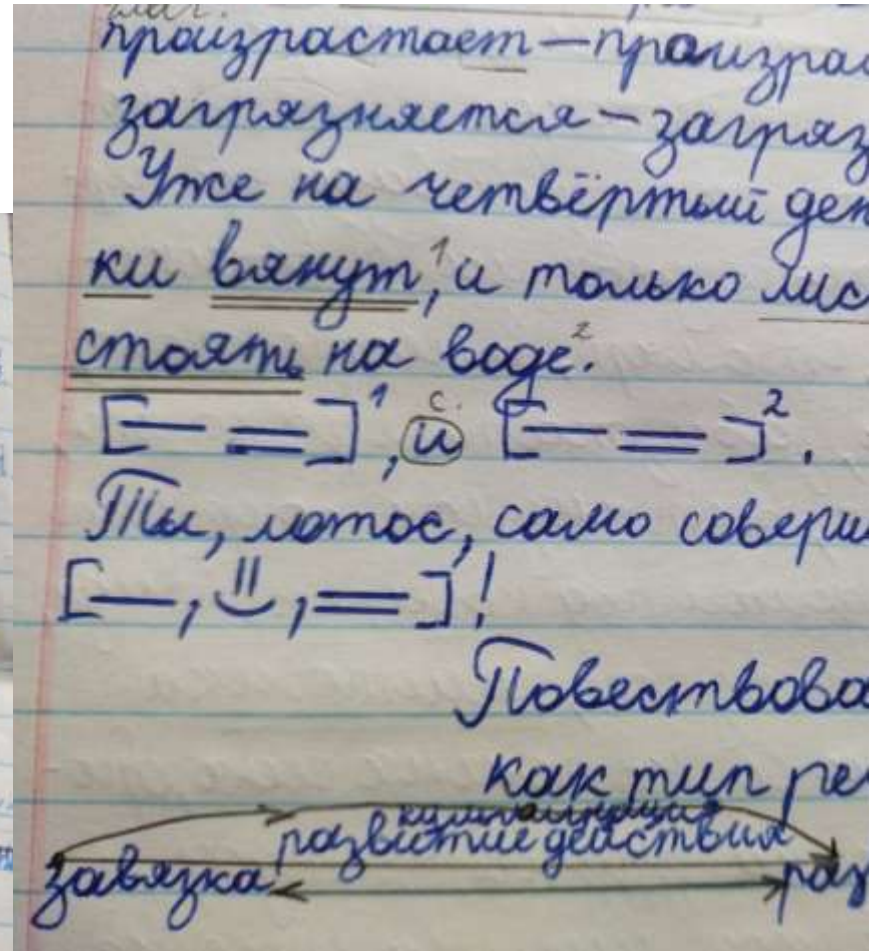 произрастает – произрас
загрязняется – загряз
Уже на четвёртый ден
ки вянут,¹ и только лис
стоять на воде².
[— =]¹, и [— =]².
с.
Ты, лотос, само соверш
[—, , =]!
Повествова
как тип ре
кульминация
развитие действия
завязка раз